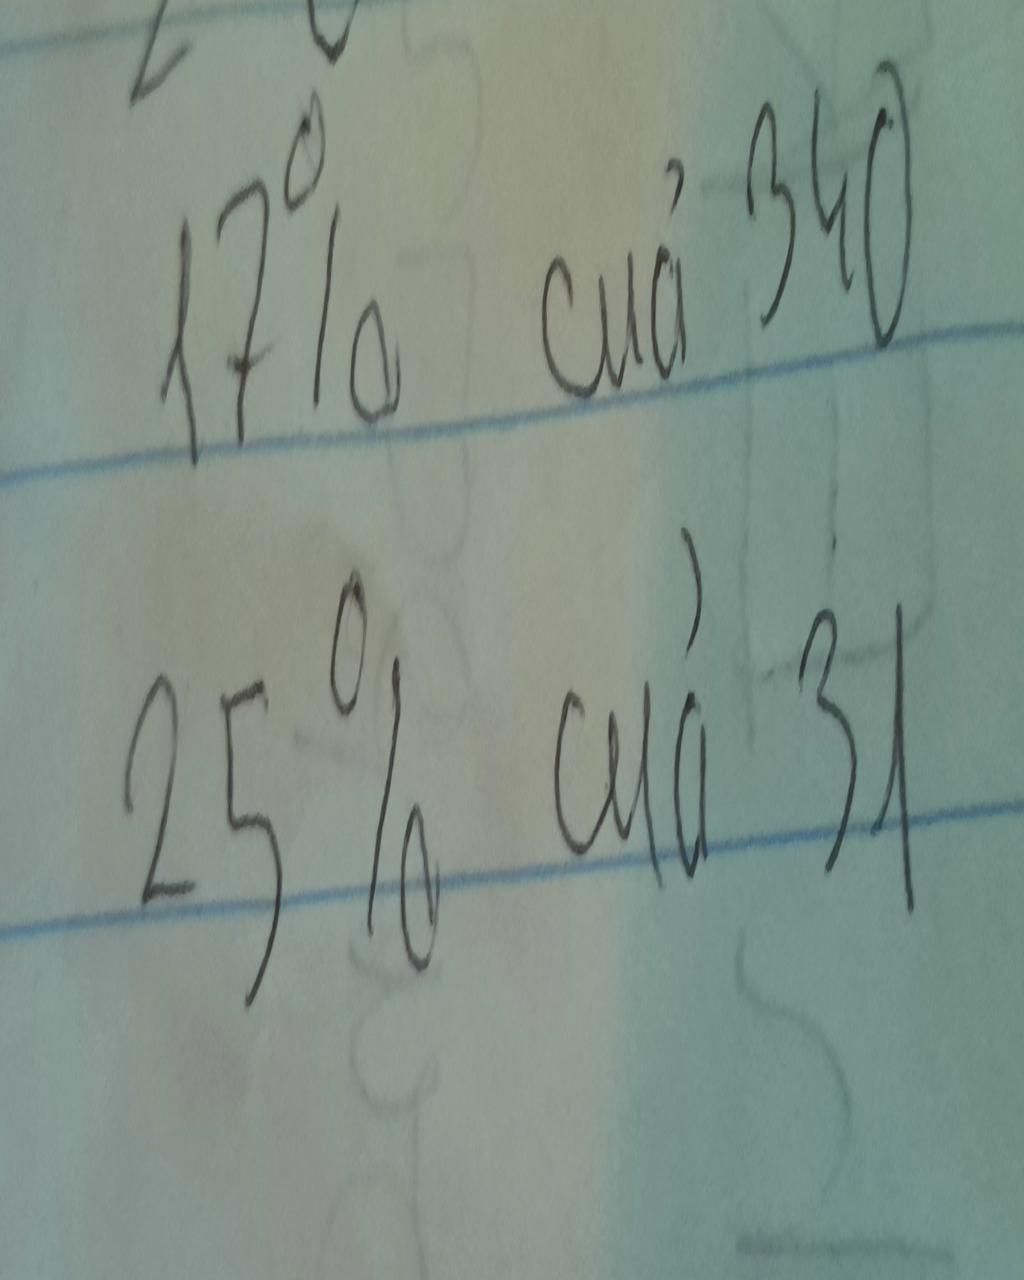 17% củả 340
25% của 31